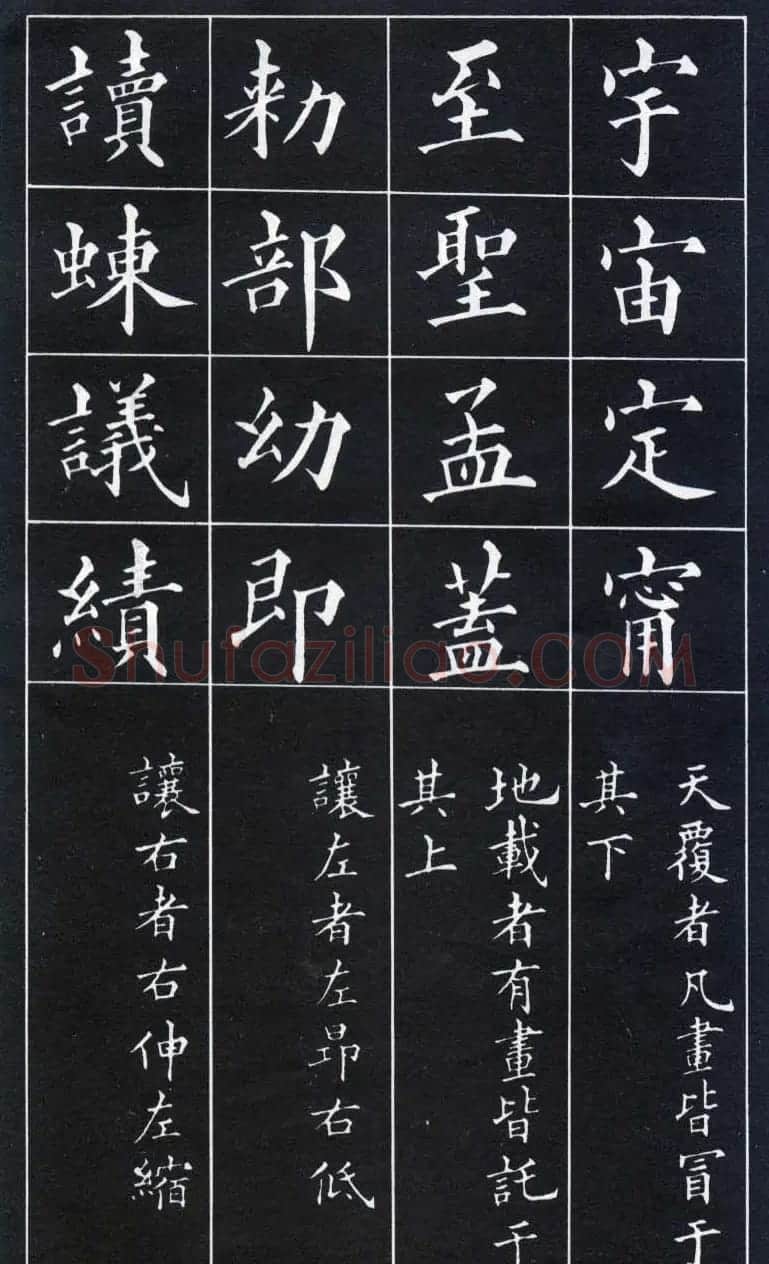 宇宙定甯
天覆者凡畫皆冒于
其下
至聖孟蓋
地載者有畫皆託于
其上
勅部幼即
讓左者左昂右低
讀蝀議績
讓右者右伸左縮
Shufaziliao.COM